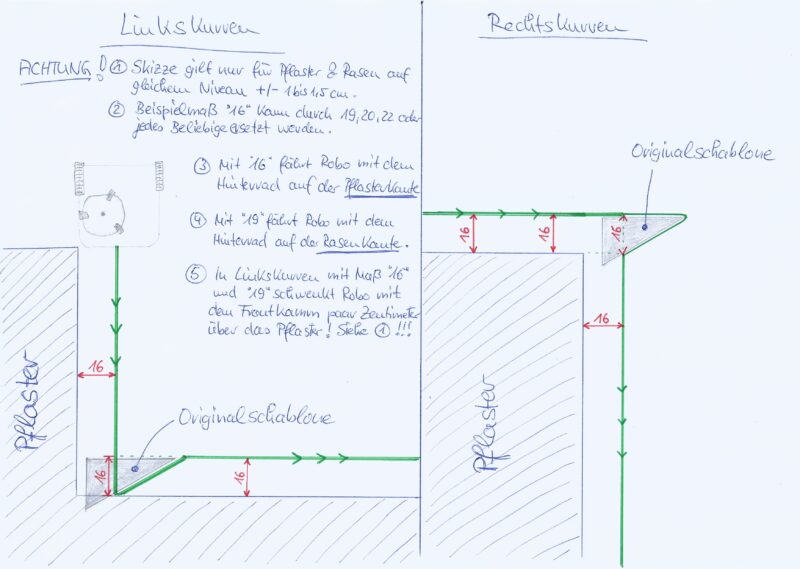 Linkskurven
ACHTUNG!
① Skizze gilt nur für Pflaster & Rasen auf
gleichem Niveau +/- 1 bis 1,5 cm.
② Beispielmaß "16" kann durch 19, 20, 22 oder
jedes Beliebige ersetzt werden.
③ Mit "16" fährt Robo mit dem
Hinterrad auf der Pflasterkante
④ Mit "19" fährt Robo mit dem
Hinterrad auf der Rasenkante.
⑤ In Linkskurven mit Maß "16"
und "19" schwenkt Robo mit
dem Frontkamm paar Zentimeter
über das Pflaster! Siehe ① !!!
Pflaster
16
Originalschablone
16
16
Rechtskurven
Originalschablone
16
16
16
16
Pflaster